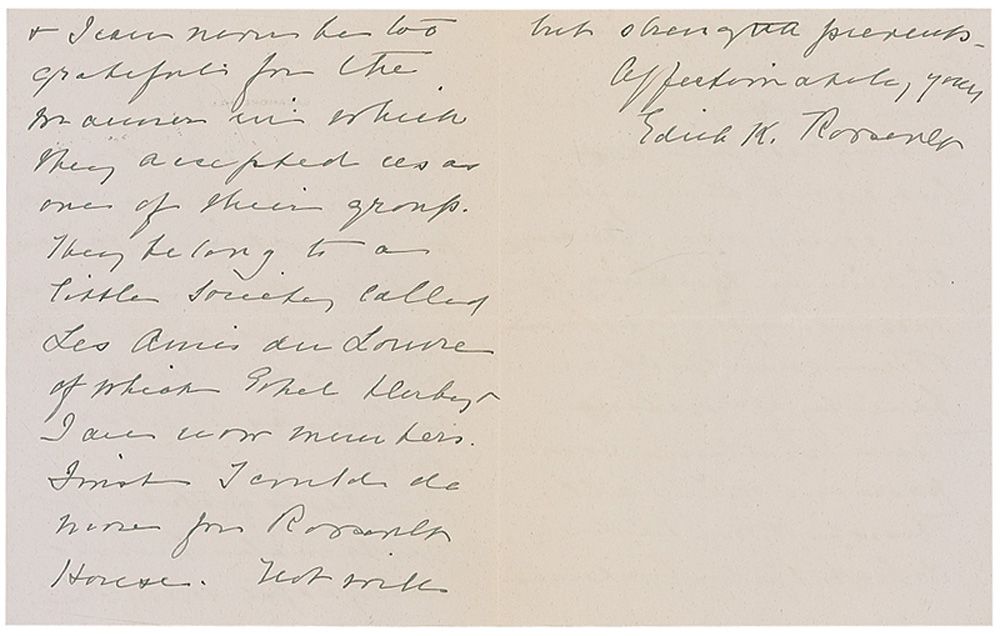 & I can never be too
grateful for the
manner in which
they accepted us as
one of their group.
They belong to a
little society called
Les Amis du Louvre
of which Ethel Derby &
I are now members.
I wish I could do
more for Roosevelt
House. Not will
but strength prevents –
Affectionately, yours
Edith K. Roosevelt